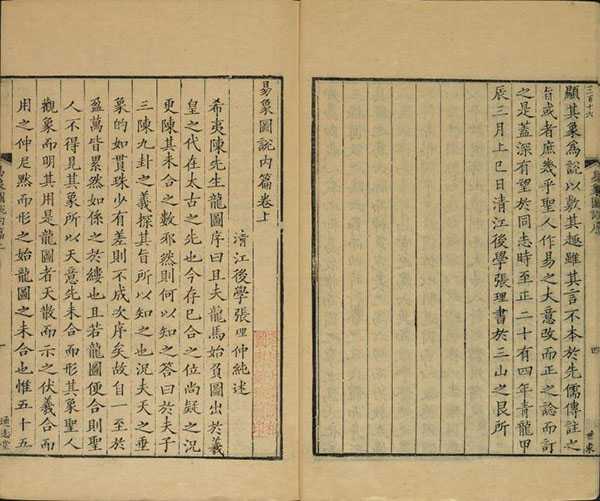 三百十六
顯其象爲說以敷其趣雖其言不本於先儒傳註之
旨或者庶幾乎聖人作易之大意改而正之諗而訂
之是蓋深有望於同志時至正二十有四年青龍甲
辰三月上巳日清江後學張理書於三山之艮所
易象圖說序
四
易象圖說內篇卷上
清江後學張理仲純述
希夷陳先生龍圖序曰且夫龍馬始負圖出於羲
皇之代在太古之先也今存已合之位尚疑之況
更陳其未合之數邪然則何以知之答曰於夫子
三陳九卦之義探其旨所以知之也況夫天之垂
象的如貫珠少有差則不成次序矣故自一至於
盈萬皆累然如係之於縷也且若龍圖便合則聖
人不得見其象所以天意先未合而形其象聖人
觀象而明其用是龍圖者天散而示之伏羲合而
用之仲尼默而形之始龍圖之未合也惟五十五
易象圖說內篇上
一
通志堂